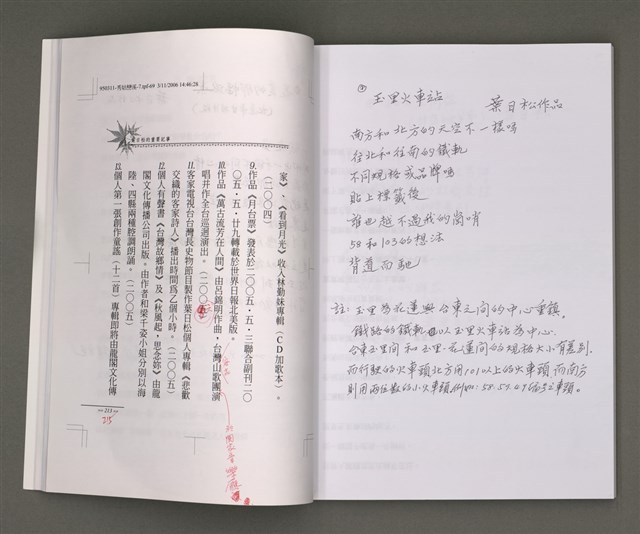 950311-秀姑戀溪-7.spf:69 3/11/2006 14:46:28
葉日松的重要紀事
家》、《看到月光》收入林勤妹專輯（CD加歌本）。
（二○○四）
9.作品《月台票》發表於二○○五‧五‧三聯合副刊二○
○五‧五‧廿九轉載於世界日報北美版。
10.作品《萬古流芳在人間》由呂錦明作曲，台灣山歌團演
唱并作全台巡迴演出。（二○○五）
11.客家電視台台灣長史物節目製作葉日松個人專輯《悲歡
交織的客家詩人》播出時間爲乙個小時。（二○○五）
12.個人有聲書《台灣故鄉情》及《秋風起，思念妳》由龍
閣文化傳播公司出版。由作者和梁千姿小姐分別以海
陸、四縣兩種腔調朗誦。（二○○五）
13.個人第一張創作童謠（十二首）專輯即將由龍閣文化傳
213
215
玉里火車站
葉日松作品
南方和北方的天空不一樣嗎
往北和往南的鐵軌
不同規格或品牌嗎
貼上標籤後
誰也越不過我的崗哨
58和103的想法
背道而馳
註：玉里為花蓮與台東之間的中心重鎮。
鐵路的鐵軌以玉里火車站為中心.
台東玉里間和玉里-花蓮間的規格大小有差別.
而行駛的火車頭北方用101以上的火車頭而南方
則用兩位數的小火車頭例如：58.59.69